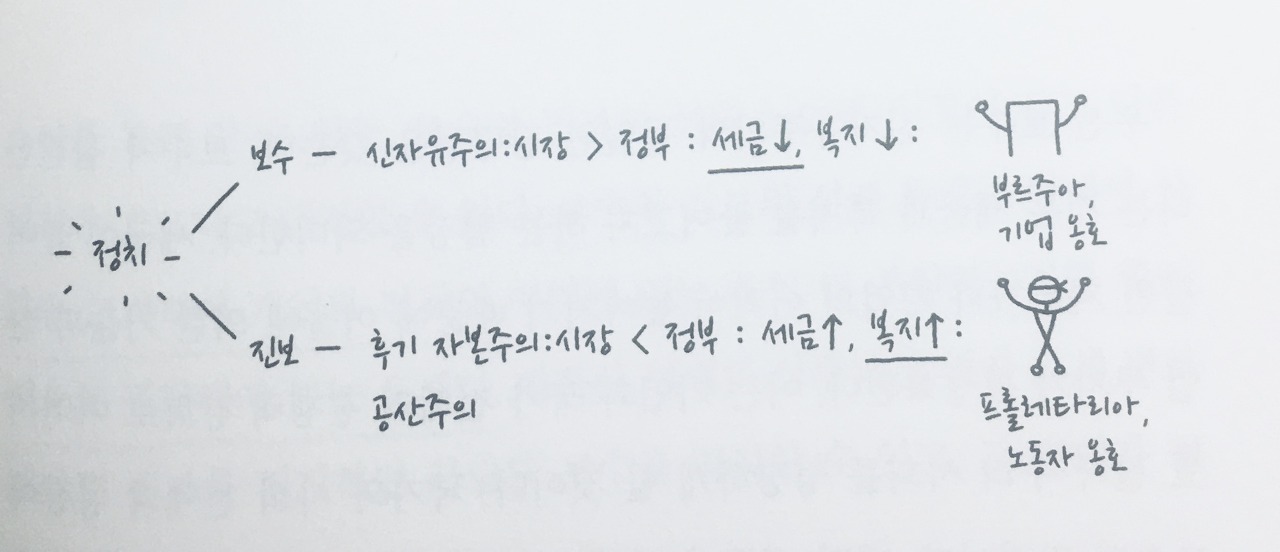 보수 — 신자유주의:시장 > 정부 : 세금↓, 복지↓:
부르주아,
기업 옹호
정치
진보 — 후기 자본주의:시장 < 정부 : 세금↑, 복지↑:
공산주의
프롤레타리아,
노동자 옹호